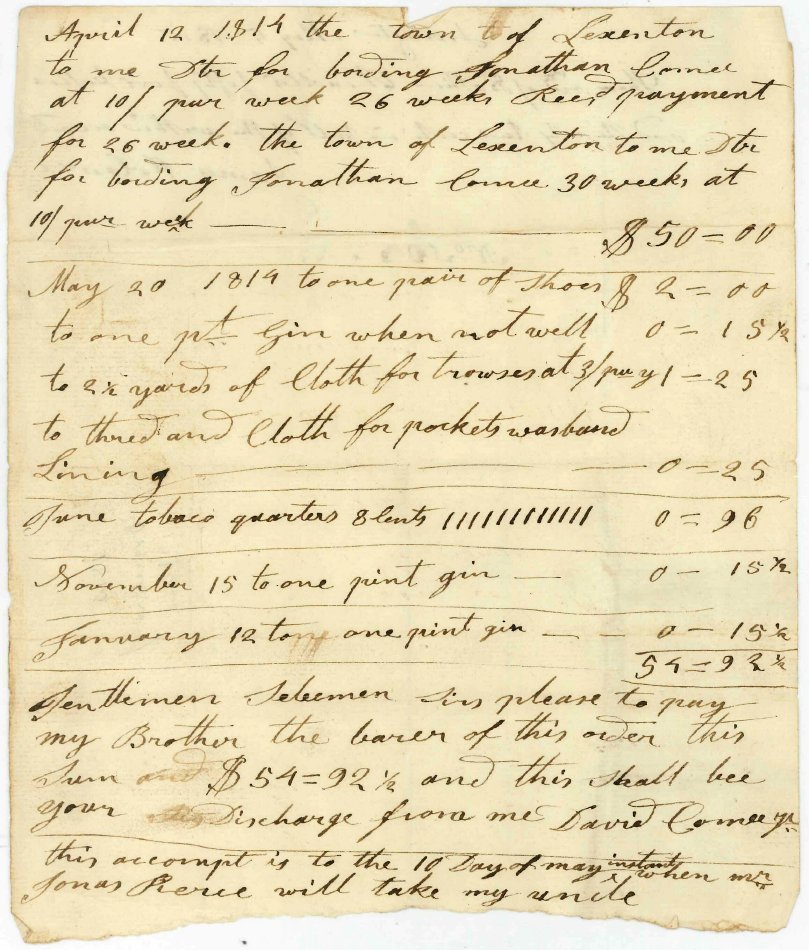 April 12 1814 the town to of Lexenton
to me Dtr for bording Jonathan Comee
at 10/ pur week 26 weeks Recd payment
for 26 week. the town of Lexenton to me Dtr
for bording Jonathan Comee 30 weeks at
10/ pur week — $ 50=00
May 20 1814 to one pair of Shoes $ 2=00
to one pt Gin when not well 0=15½
to 2½ yards of Cloth for trowses at 3/ pur y 1–25
to thred and Cloth for pockets wasband
Lining — 0–25
June tobaco quarters 8 Cents |||||||||||| 0=96
November 15 to one pint gin — 0–15½
January 12 to one pint gin — 0–15½
54=92½
Gentlimen Selecmen Sirs please to pay
my Brother the barer of this order this
Sum and $ 54=92½ and this shall bee
your Discharge from me David Comee Jr
this accompt is to the 10 Day of may instant when mr
Jonas Pierce will take my uncle